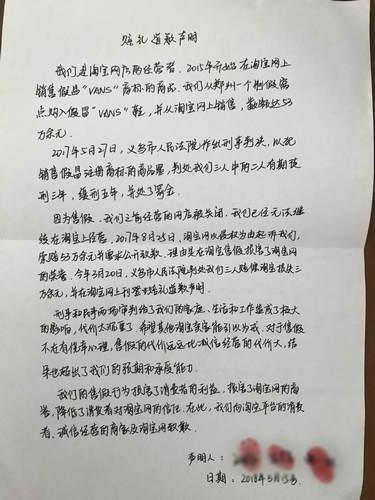 赔礼道歉声明
我们是淘宝网店的经营者。2015年开始在淘宝网上
销售假冒"VANS"商标的商品。我们从郑州一个制假窝
点购入假冒"VANS"鞋,并从淘宝网上销售,数额达53
万余元。
2017年5月27日,义乌市人民法院作出刑事判决,以犯
销售假冒注册商标的商品罪,判处我们三人中的二人有期徒
刑三年,缓刑五年,并处了罚金。
因为售假,我们之前经营的网店被关闭,我们已经无法继
续在淘宝上经营。2017年8月25日,淘宝网以侵权为由起诉我们,
索赔53万余元并要求公开致歉,理由是在淘宝售假损害了淘宝网
的荣誉。今年3月20日,义乌市人民法院判处我们三人赔偿淘宝损失三
万余元,并在淘宝网上刊登赔礼道歉声明。
刑事和民事两场审判给了我们的家庭、生活和工作造成了极大
的影响,代价太沉重了。希望其他淘宝卖家能引以为戒,对于售假
不应有侥幸心理,售假的代价远远比诚信经营的代价大,结
果也超出了我们的预期和承受能力。
我们的售假行为损害了消费者的利益,损害了淘宝网的商
誉,降低了消费者对淘宝网的信任。在此,我们向淘宝平台的消费
者、诚信经营的商家及淘宝网致歉。
声明人:
日期:2018年5月15号